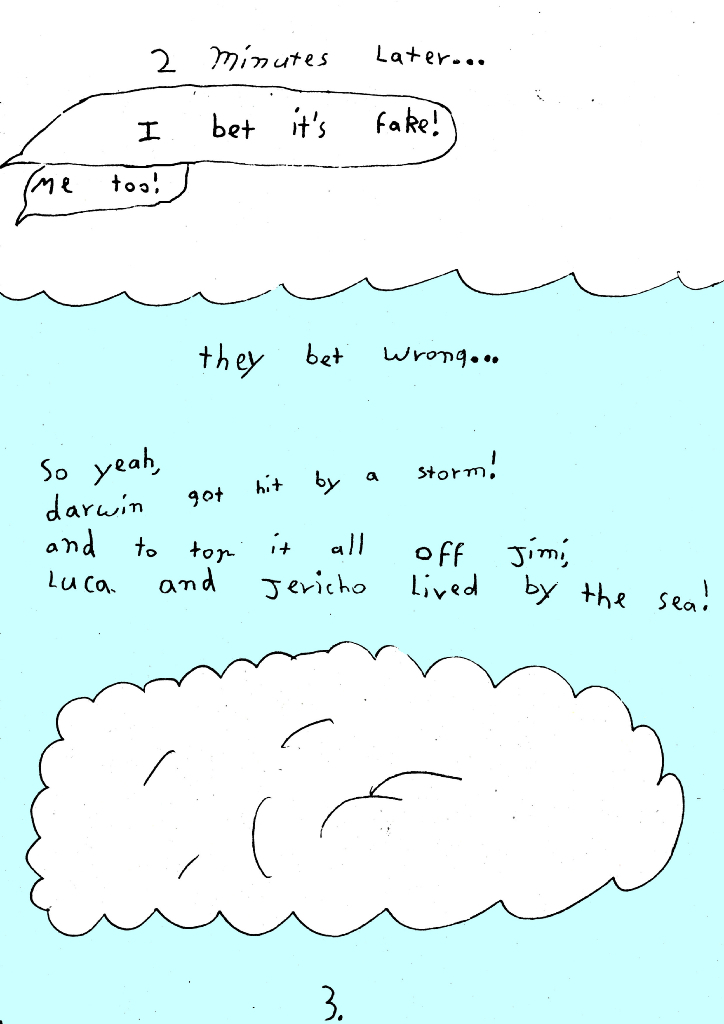 2 Minutes Later...
I bet it's fake!
Me too!
they bet wrong...
So yeah,
darwin got hit by a storm!
and to top it all off Jimi,
Luca. and Jericho Lived by the sea!
3.